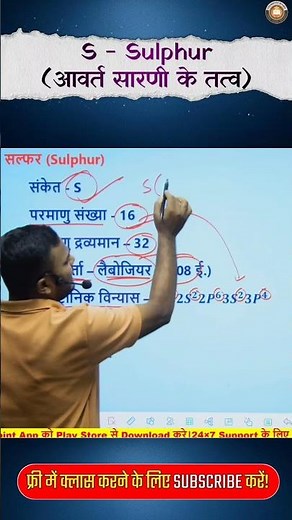 S - Sulphur
(आवर्त सारणी के तत्व)
सल्फर (Sulphur)
संकेत - S
S(
परमाणु संख्या - 16
द्रव्यमान - 32
लैबोजियर 08 ई.)
विन्यास - 2S² 2P⁶ 3S² 3P⁴
App को Play Store से Download करें।24×7 Support के लिए
फ्री में क्लास करने के लिए SUBSCRIBE करें!